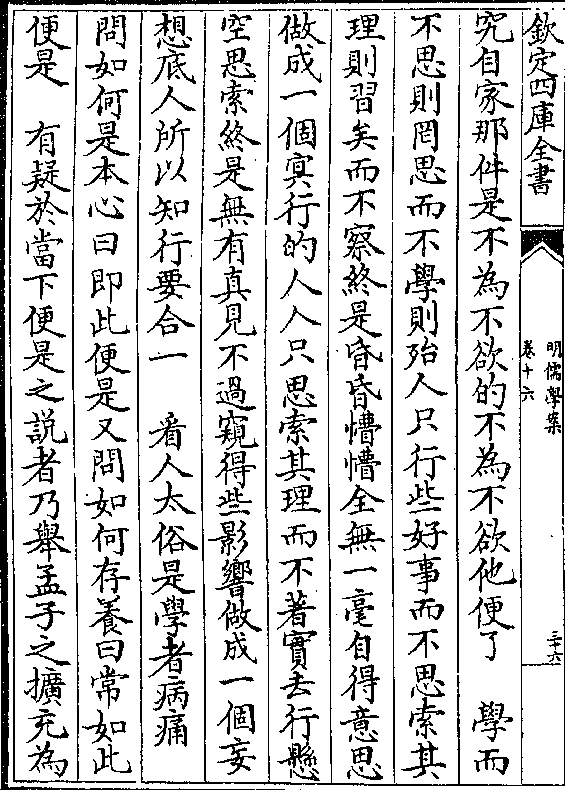 欽定四庫全書
明儒學案
卷十六
三十六
究自家那件是不為不欲的不為不欲他便了　學而
不思則罔思而不學則殆人只行些好事而不思索其
理則習矣而不察終是昏昏懵懵全無一毫自得意思
做成一個冥行的人人只思索其理而不著實去行懸
空思索終是無有真見不過窺得些影響做成一個妄
想底人所以知行要合一　看人太俗是學者病痛
問如何是本心曰即此便是又問如何存養曰常如此
便是　有疑於當下便是之說者乃舉孟子之擴充為